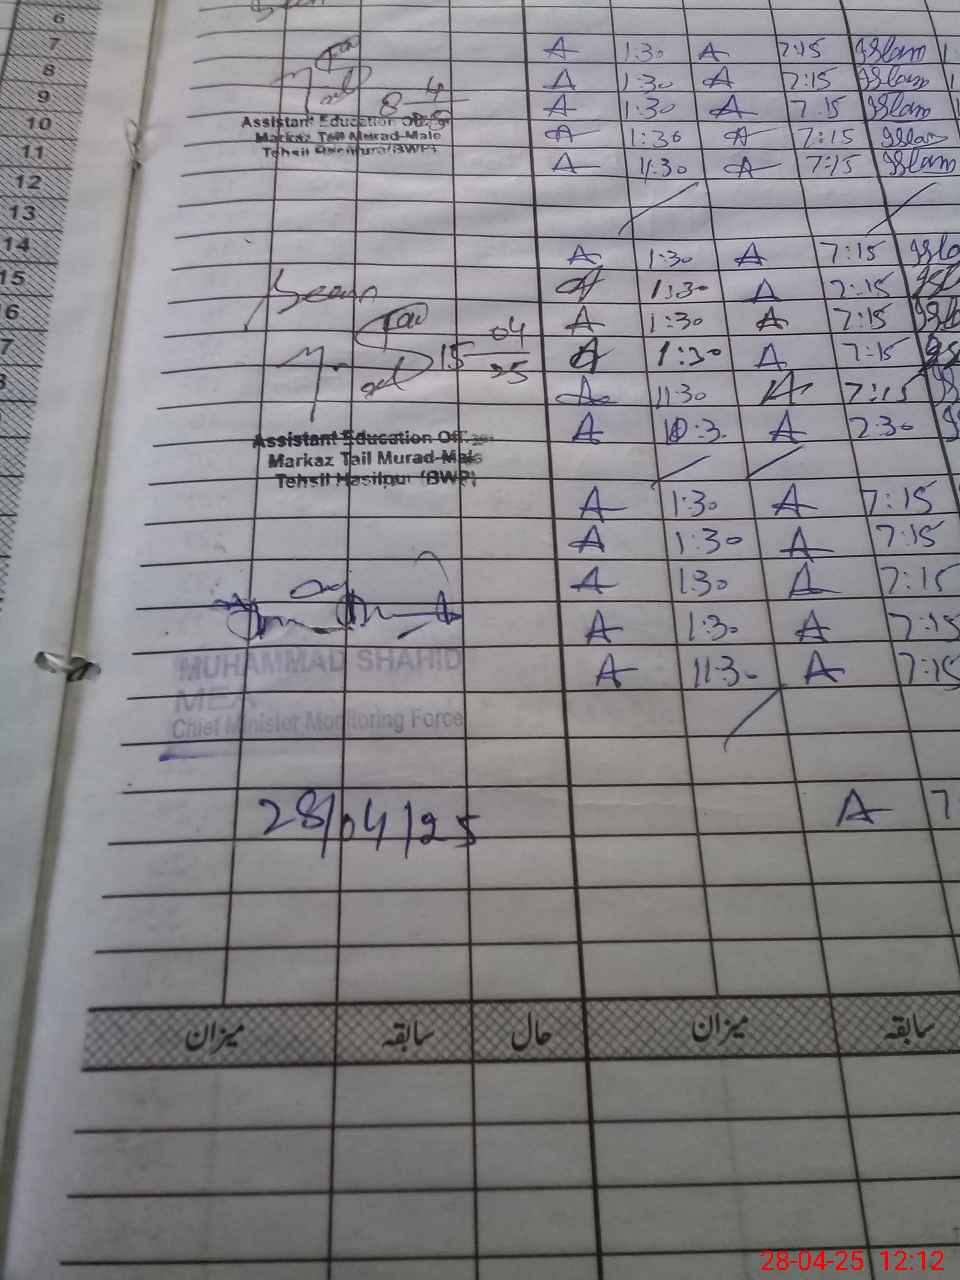 6
7 A 1:30 A 7:15 Islam
8 A 1:30 A 7:15 Islam
9 8-4 A 1:30 A 7:15 Islam
10 Assistant Education A 1:30 A 7:15 Islam
Markaz Tail Murad-Male
11 Tehsil Hasilpur (BWP) A 11:30 A 7:15 Islam
12
13
14 A 1:30 A 7:15
15 Seen A 1:30 A 7:15
16 A 1:30 A 7:15
7 15-04-25 A 1:30 A 7:15
A 11:30 A 7:15
A A 2:30
Assistant Education
Markaz Tail Murad-Male
Tehsil Hasilpur (BWP)
A 1:30 A 7:15
A 1:30 A 7:15
A 1:30 A 7:15
A 1:30 A 7:15
MUHAMMAD SHAHID A 11:30 A 7:15
MEA
Chief Minister Monitoring Force
28/04/25 A
میزان سابقہ حال میزان سابقہ
28-04-25 12:12